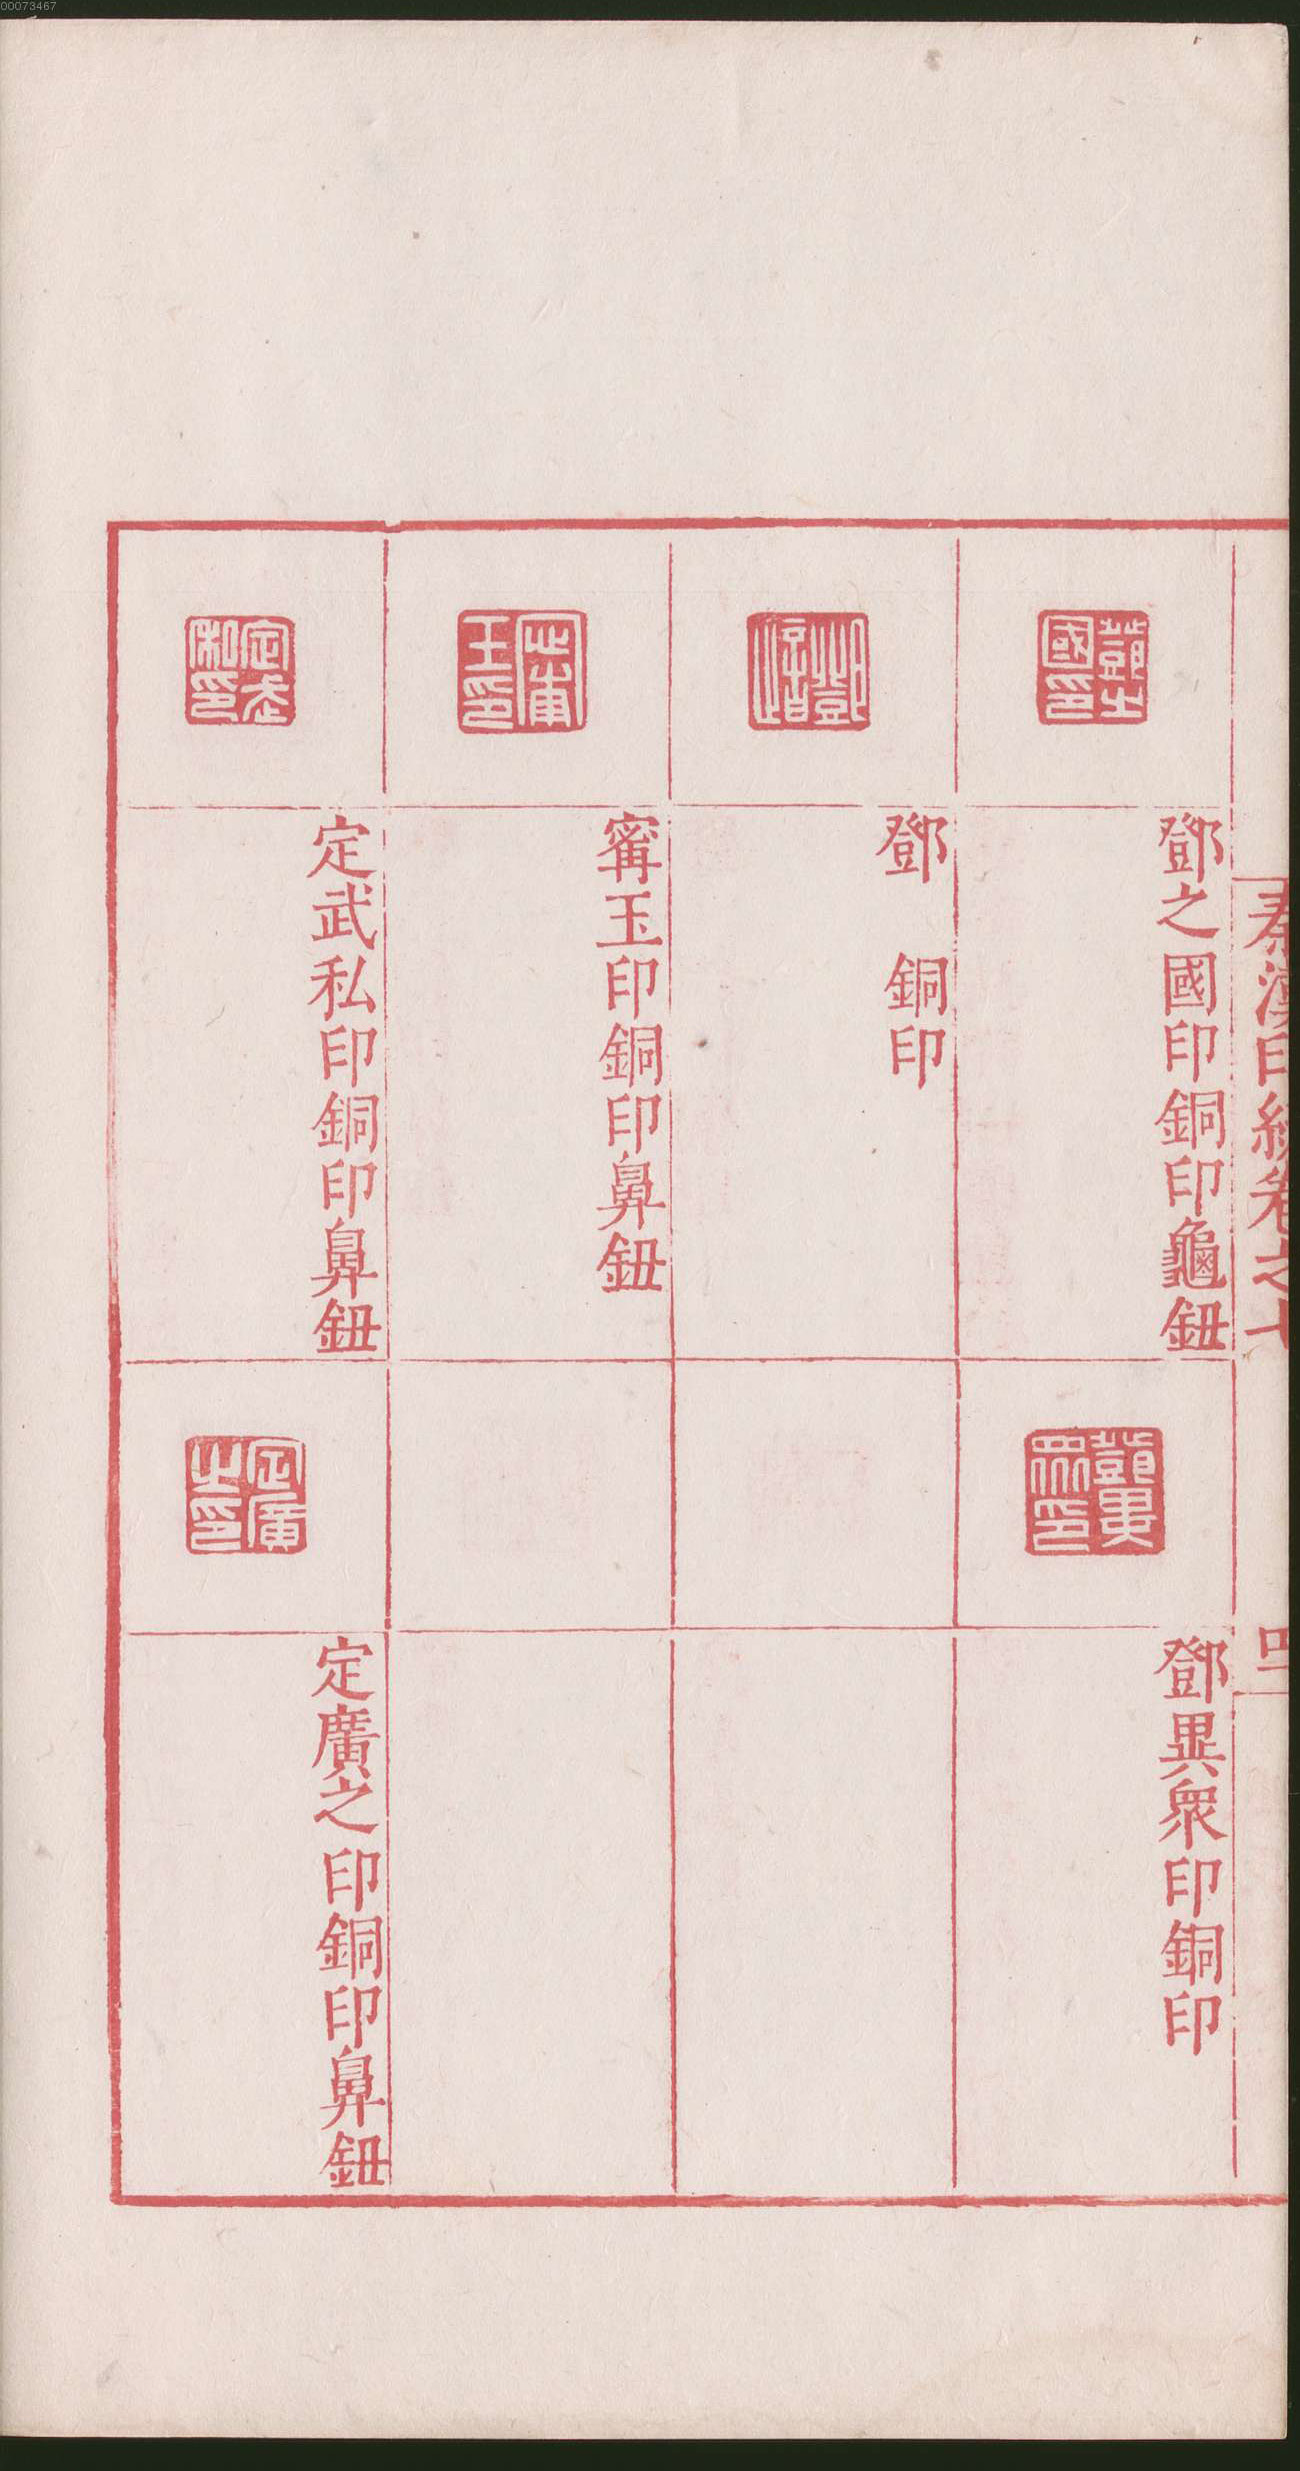 00073467
秦漢印統卷之七
四
鄧之國印銅印龜鈕
鄧異衆印銅印
鄧　銅印
甯玉印銅印鼻鈕
定武私印銅印鼻鈕
定廣之印銅印鼻鈕